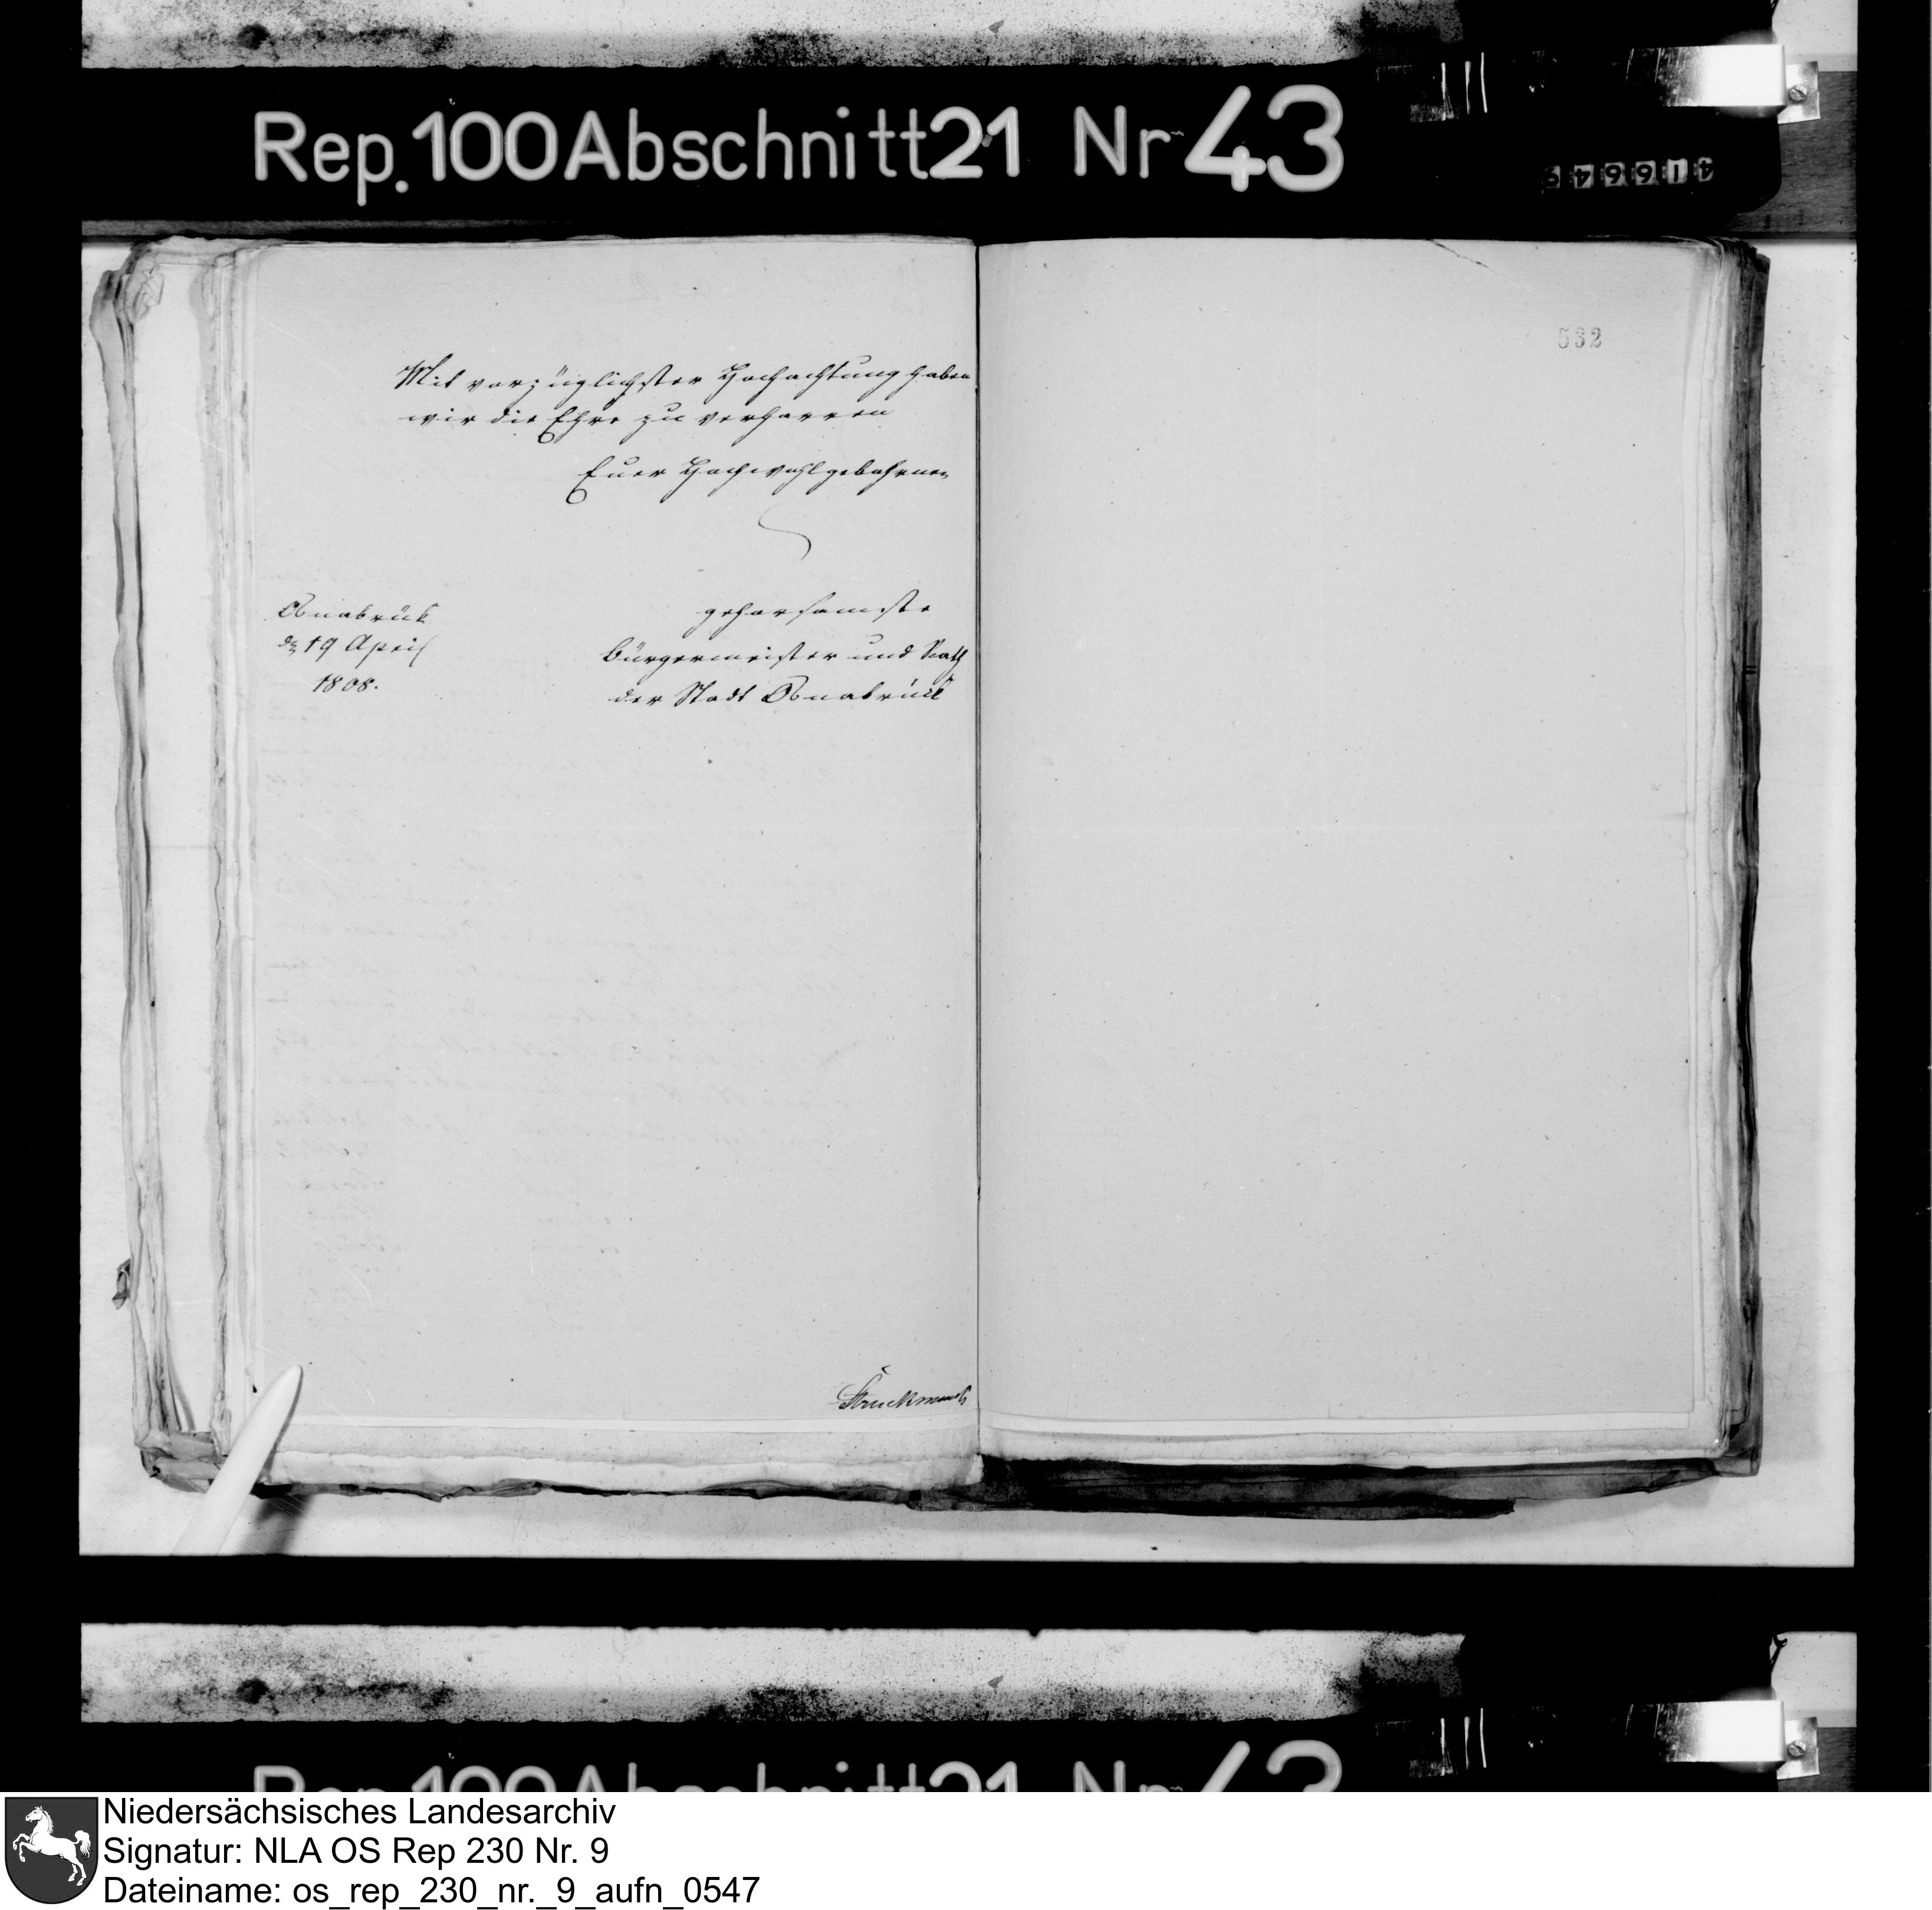 Rep. 100 Abschnitt 21 Nr 43
532
Mit vorzüglichster Hochachtung haben
wir die Ehre zu verharren
Euer Hochwohlgebohrnen
gehorsamste
Osnabrück
Bürgermeister und Rath
den 19 April
der Stadt Osnabrück
1808.
Struckmann
Niedersächsisches Landesarchiv
Signatur: NLA OS Rep 230 Nr. 9
Dateiname: os_rep_230_nr._9_aufn_0547